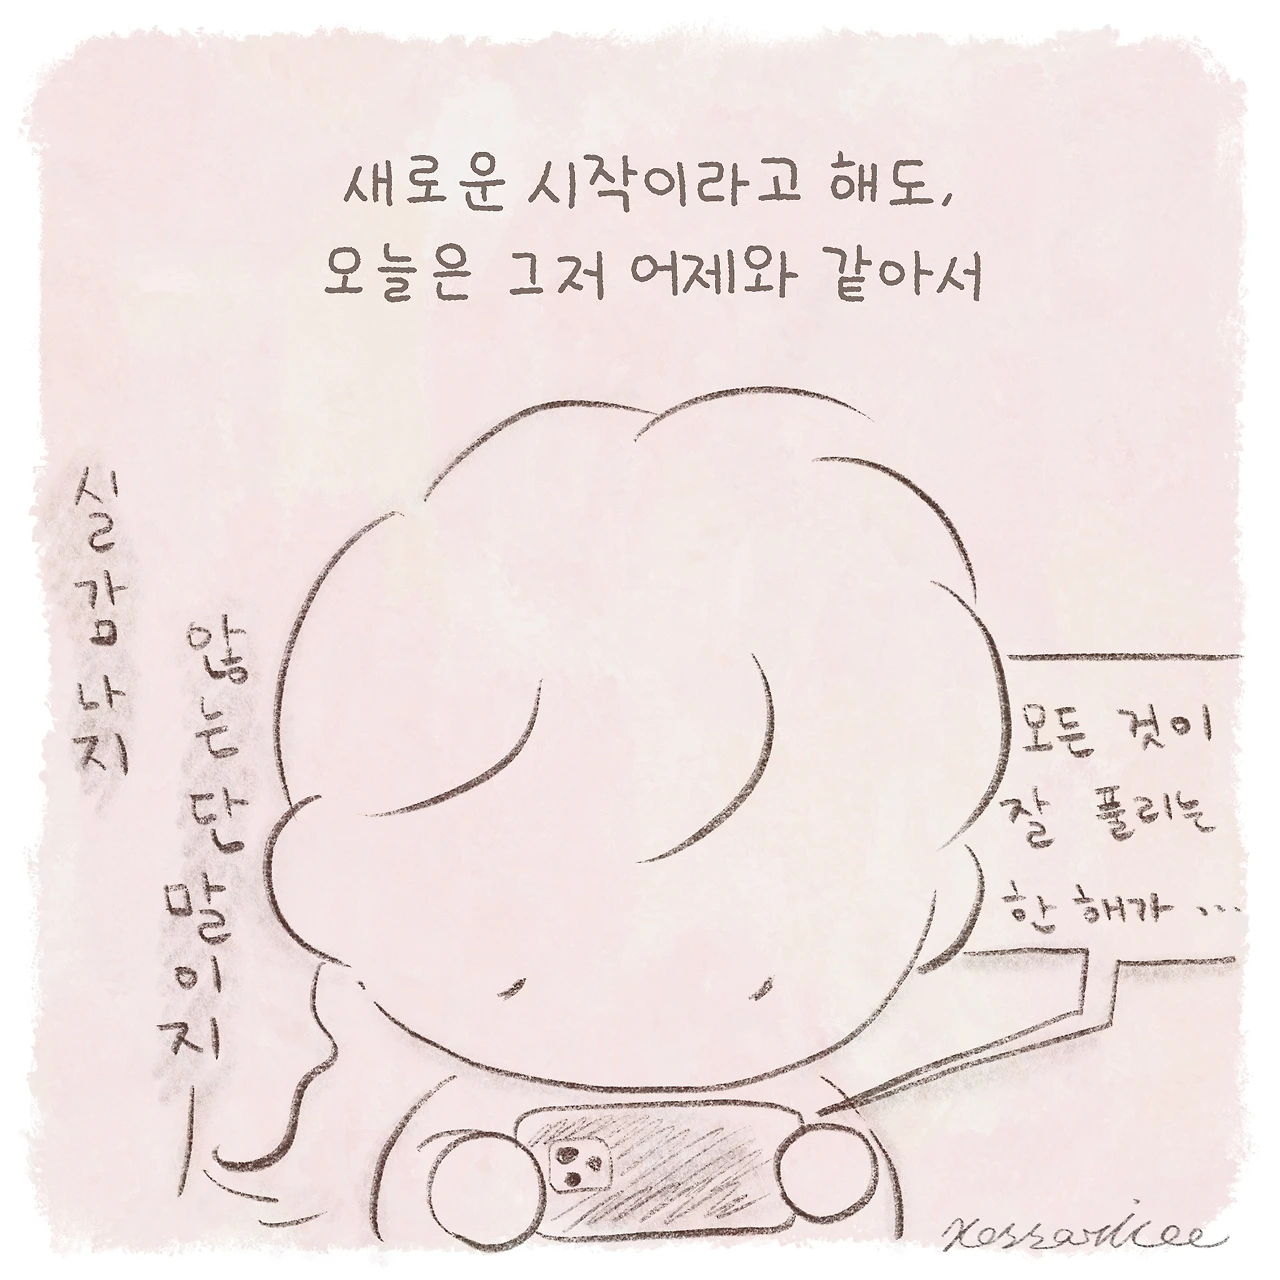 새로운 시작이라고 해도,
오늘은 그저 어제와 같아서
실감나지
않는단말이지
모든 것이
잘 풀리는
한 해가 ...